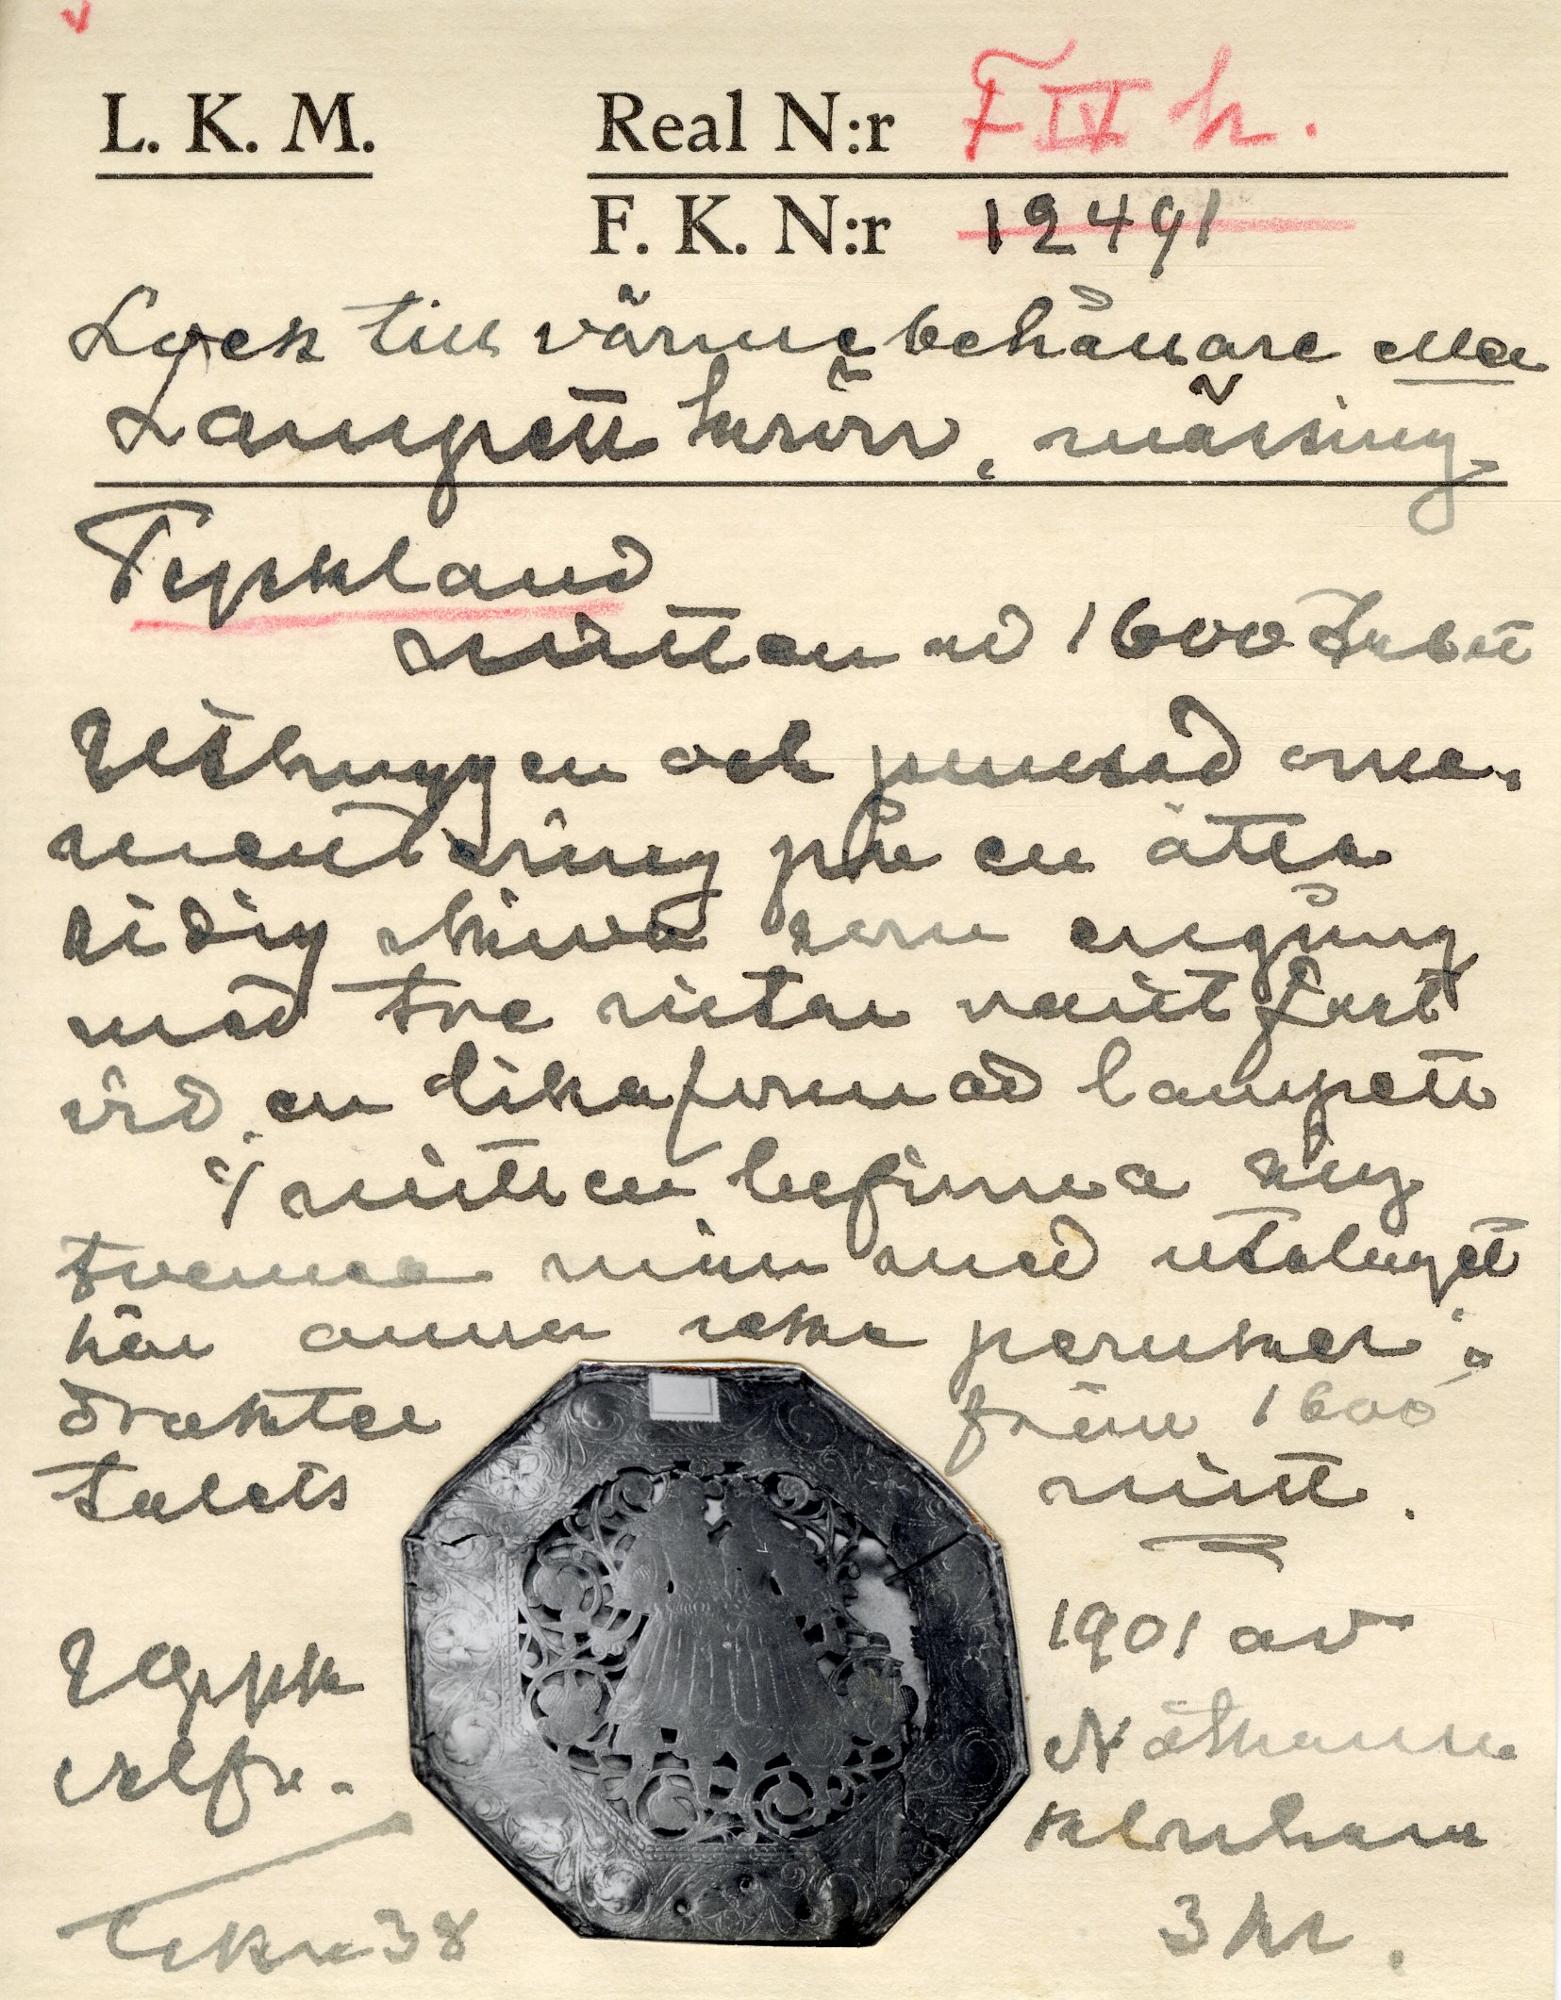 L. K. M. Real N:r F IV h.
F. K. N:r 12491
Lock till värmebehållare eller
Lampett krön, mässing
Tyskland
mitten ad 1600 talet
Uthuggen och punsad orna-
mentering på en åtta
sidig skiva som engång
med tre nitar varit fäst
vid en lika formad lampett
i mitten befinna sig
tvenne män med utslaget
hår annars icke peruker i
drakter från 1600
talets mitt.
1901 av
Nathann
Abraham
3 kr.
38